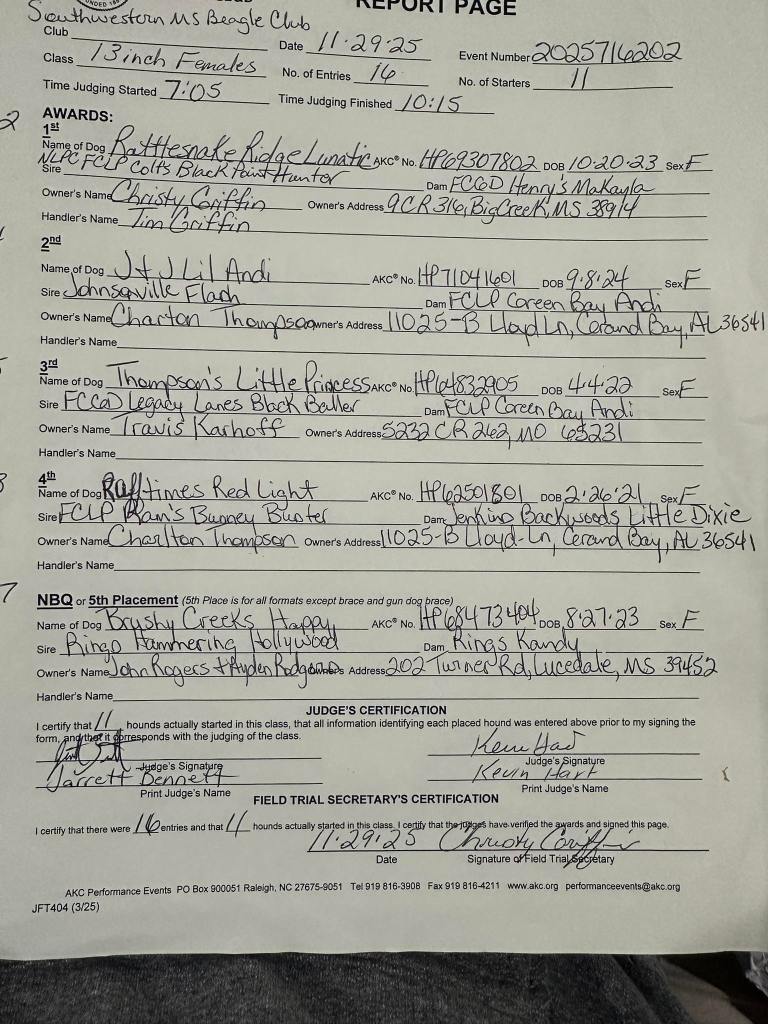 REPORT PAGE
Southwestern MS Beagle Club
Club Date 11-29-25 Event Number 2025716202
Class 13 inch Females No. of Entries 16 No. of Starters 11
Time Judging Started 7:05 Time Judging Finished 10:15
AWARDS:
1st
Name of Dog Rattlesnake Ridge Lunatic AKC® No. HP69307802 DOB 10-20-23 Sex F
Sire NLPC FCLP Colts Black Point Hunter Dam FCGD Henry's Makayla
Owner's Name Christy Griffin Owner's Address 9 CR 316, Big Creek, MS 38914
Handler's Name Tim Griffin
2nd
Name of Dog J & J Lil Andi AKC® No. HP71041601 DOB 9-8-24 Sex F
Sire Johnsonville Flash Dam FCLP Green Bay Andi
Owner's Name Charton Thompson Owner's Address 11025-B Lloyd Ln, Grand Bay, AL 36541
Handler's Name
3rd
Name of Dog Thompson's Little Princess AKC® No. HP64832905 DOB 4-4-22 Sex F
Sire FCGD Legacy Lanes Black Baller Dam FCLP Green Bay Andi
Owner's Name Travis Karhoff Owner's Address 5232 CR 262, MO 65231
Handler's Name
4th
Name of Dog Ralftimes Red Light AKC® No. HP62501801 DOB 2-26-21 Sex F
Sire FCLP Ram's Bunney Buster Dam Jenkins Backwoods Little Dixie
Owner's Name Charlton Thompson Owner's Address 11025-B Lloyd-Ln, Grand Bay, AL 36541
Handler's Name
7
NBQ or 5th Placement (5th Place is for all formats except brace and gun dog brace)
Name of Dog Brushy Creeks Happy AKC® No. HP68473404 DOB 8-27-23 Sex F
Sire Ringo Hammering Hollywood Dam Rings Kandy
Owner's Name John Rogers & Ayden Rodgers Owner's Address 202 Turner Rd, Lucedale, MS 39452
Handler's Name
JUDGE'S CERTIFICATION
I certify that 11 hounds actually started in this class, that all information identifying each placed hound was entered above prior to my signing the
form, and that it corresponds with the judging of the class.
Kevin Hart
Judge's Signature Judge's Signature
Jarrett Bennett Kevin Hart
Print Judge's Name Print Judge's Name
FIELD TRIAL SECRETARY'S CERTIFICATION
I certify that there were 16 entries and that 11 hounds actually started in this class. I certify that the judges have verified the awards and signed this page.
11-29-25 Christy Griffin
Date Signature of Field Trial Secretary
AKC Performance Events PO Box 900051 Raleigh, NC 27675-9051 Tel 919 816-3908 Fax 919 816-4211 www.akc.org performanceevents@akc.org
JFT404 (3/25)